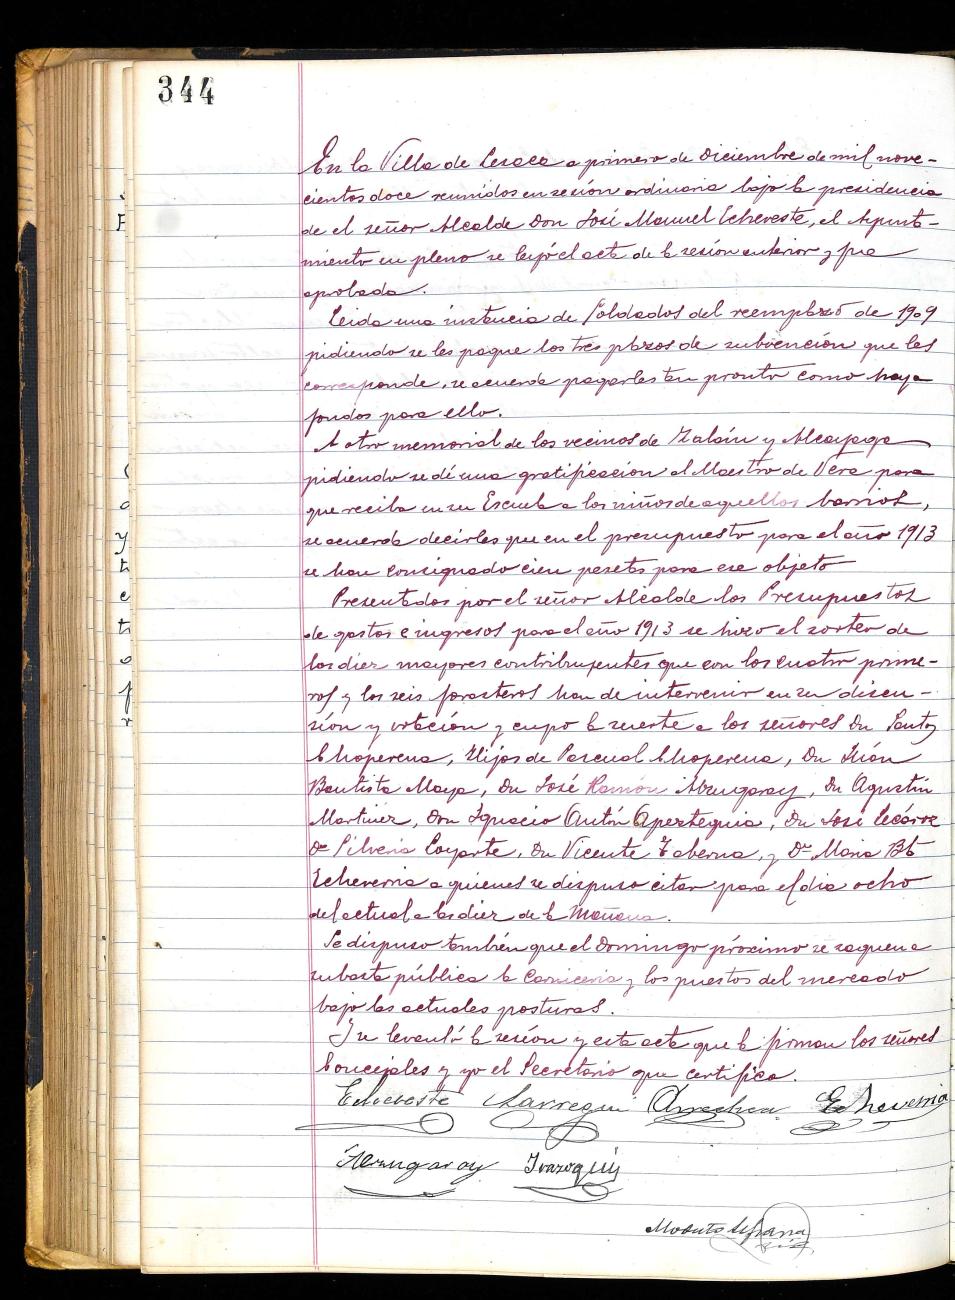 344
En la Villa de Lesaca a primero de Diciembre de mil nove-
cientos doce reunidos en sesión ordinaria bajo la presidencia
de el señor Alcalde Don José Manuel Echeveste, el Ayunta-
miento en pleno se leyó el acta de la sesión anterior y fue
aprobada.
Leida una instancia de Soldados del reemplazo de 1909
pidiendo se les pague los tres plazos de subvención que les
corresponde, se acuerda pagarles tan pronto como haya
fondos para ello.
A otro memorial de los vecinos de Zalain y Alcayaga
pidiendo se dé una gratificación al Maestro de Vera para
que reciba en su Escuela a los niños de aquellos barrios,
se acuerda decirles que en el presupuesto para el año 1913
se han consignado cien pesetas para ese objeto
Presentados por el señor Alcalde los Presupuestos
de gastos e ingresos para el año 1913 se hizo el sorteo de
los diez mayores contribuyentes que con los cuatro prime-
ros y los seis forasteros han de intervenir en su discu-
sión y votación y cupo la suerte a los señores Dn Santos
Choperena, Hijos de Pascual Choperena, Dn Juan
Bautista Maya, Dn José Ramón Abzugaray, Dn Agustín
Martinez, Don Ignacio Antón Apezteguia, Dn José
Dª Silveria Loyarte, Dn Vicente Taberna, y Dª Maria Btª
Echeverria a quienes se dispuso citar para el dia ocho
del actual a las diez de la Mañana.
Se dispuso también que el Domingo próximo se saquen a
subasta pública la Carniceria y los puestos del mercado
bajo las actuales posturas.
Y se levantó la sesión y esta acta que la firman los señores
Concejales y yo el Secretario que certifico.
Echeveste Larregui Arrechea Echeverria
Abzugaray Irazoqui
Modesto